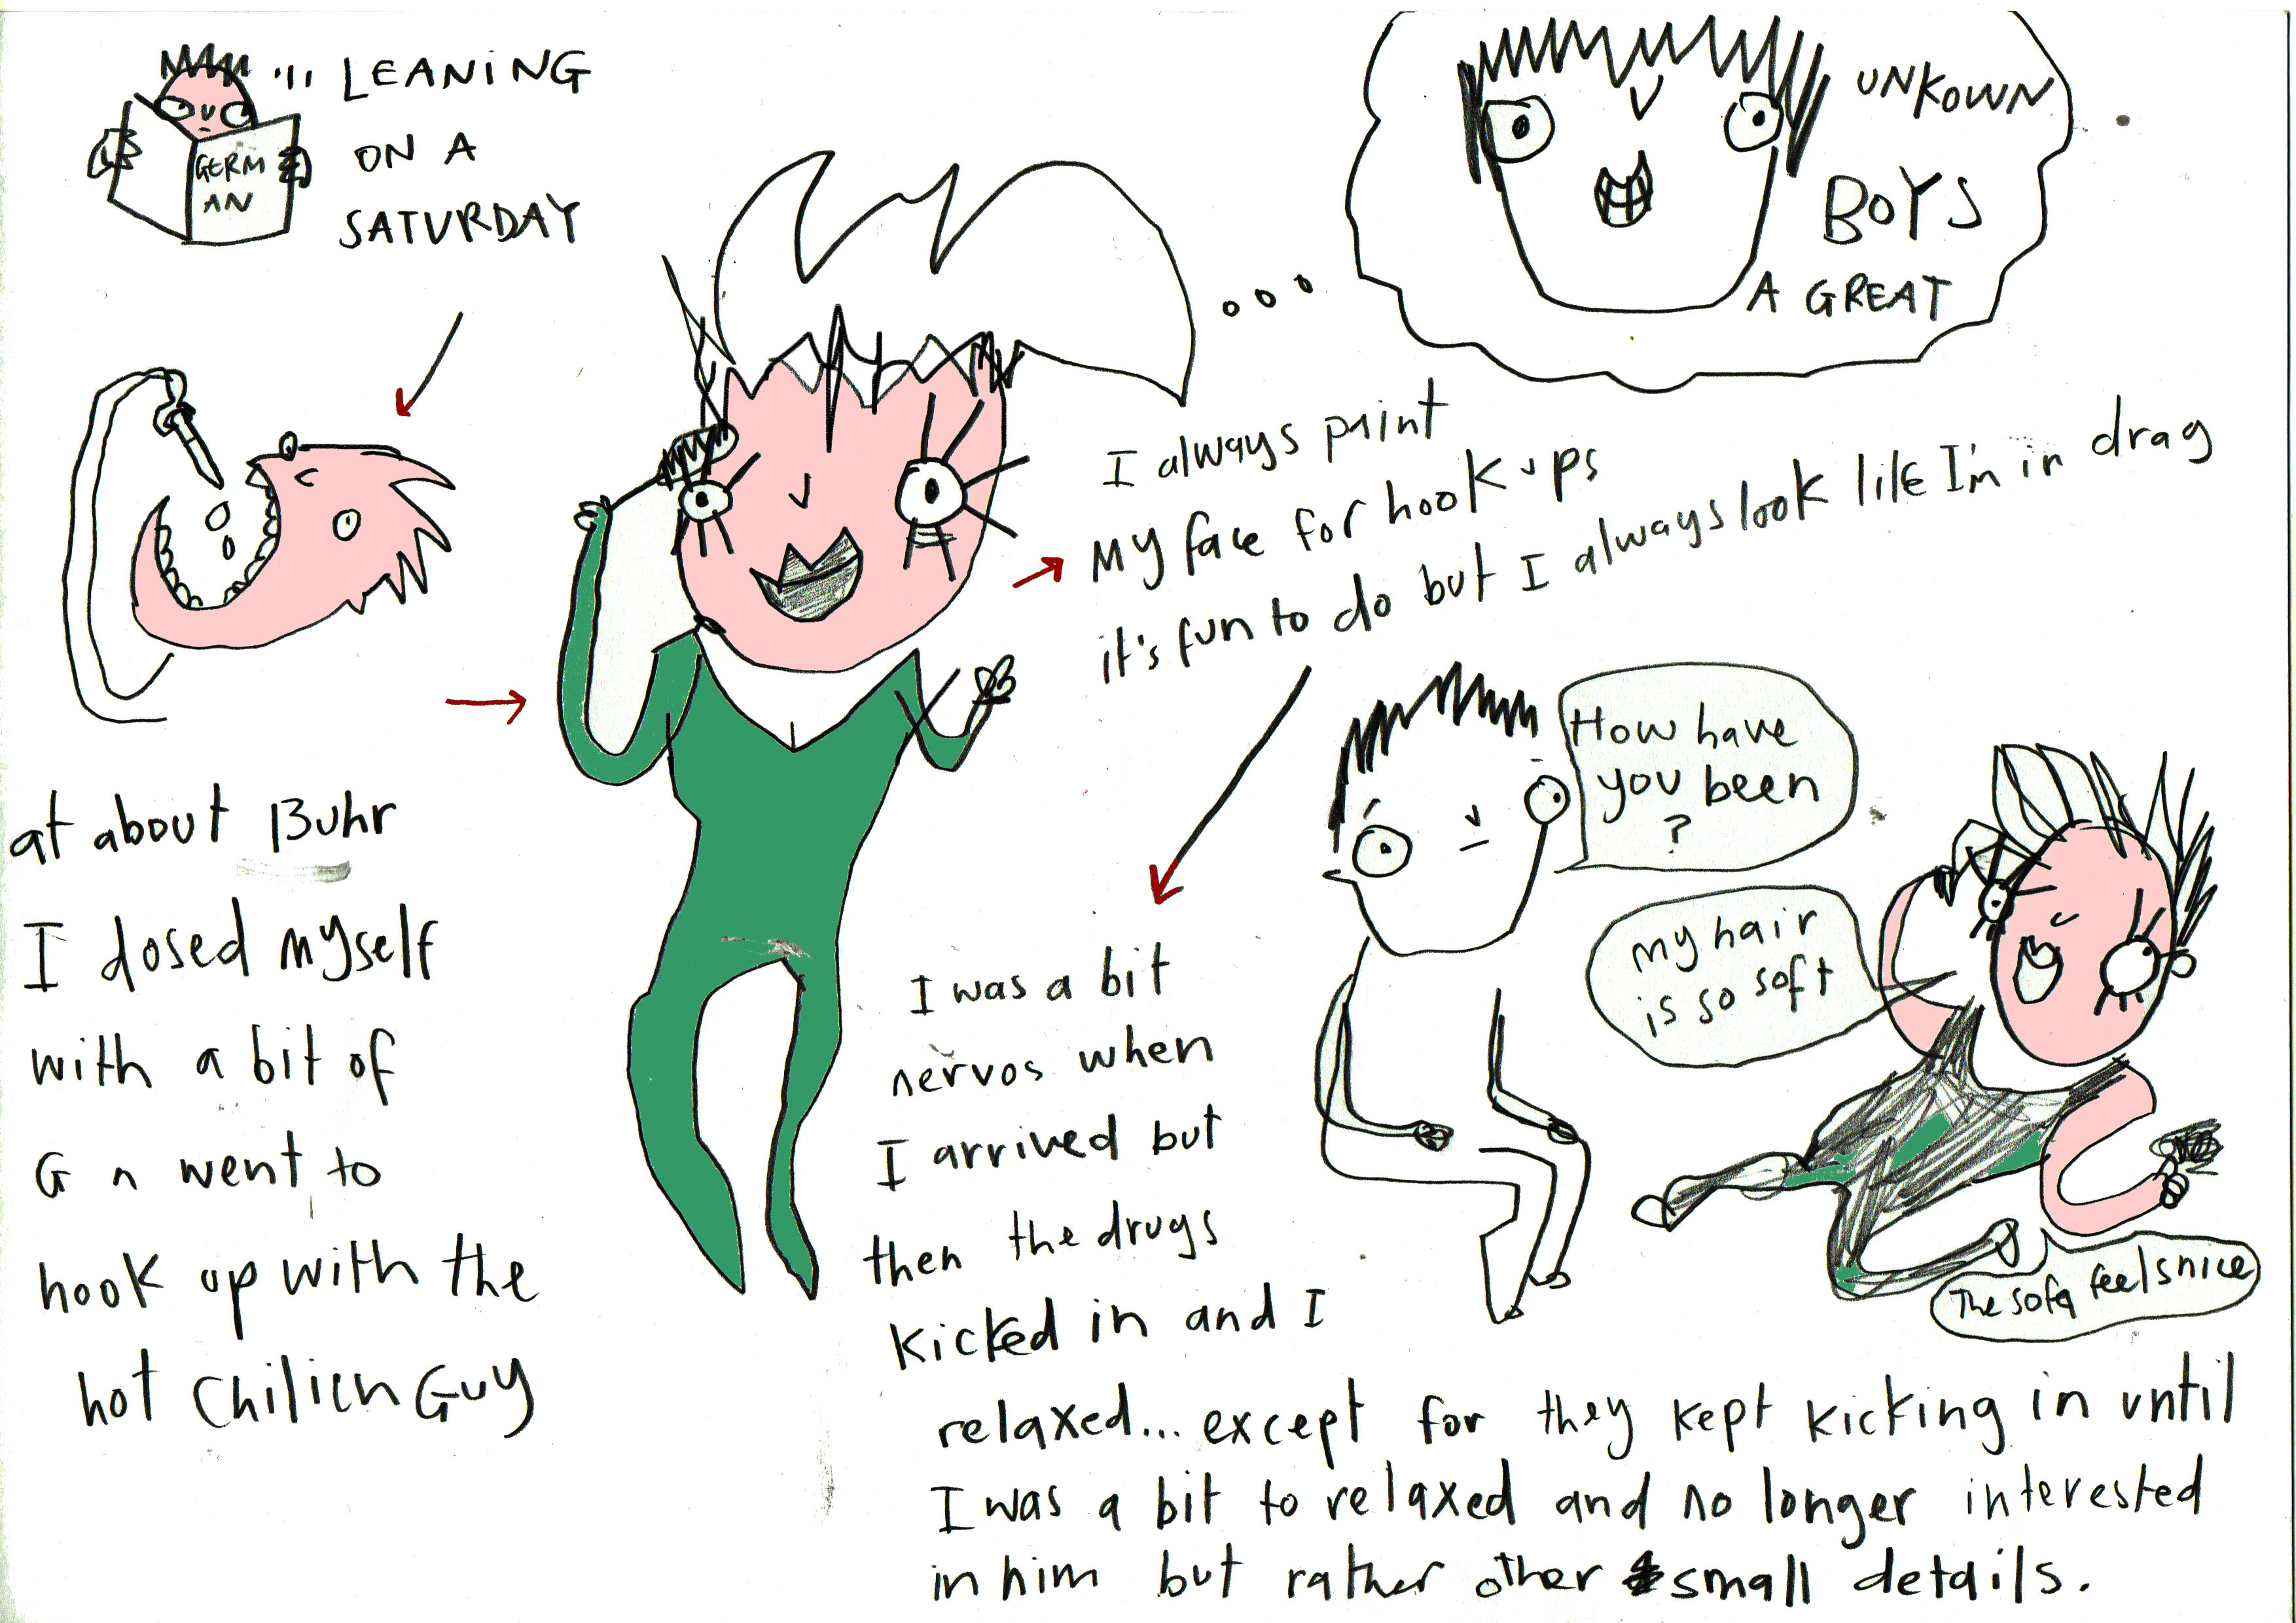 LEANING
ON A
SATURDAY
GERM
AN
UNKOWN
BOYS
A GREAT
at about 13uhr
I dosed myself
with a bit of
G n went to
hook up with the
hot Chilien Guy
I always paint
My face for hook ups
it's fun to do but I always look like I'm in drag
How have
you been
?
my hair
is so soft
The sofa feels nice
I was a bit
nervos when
I arrived but
then the drugs
kicked in and I
relaxed... except for they kept kicking in until
I was a bit to relaxed and no longer interested
in him but rather other small details.